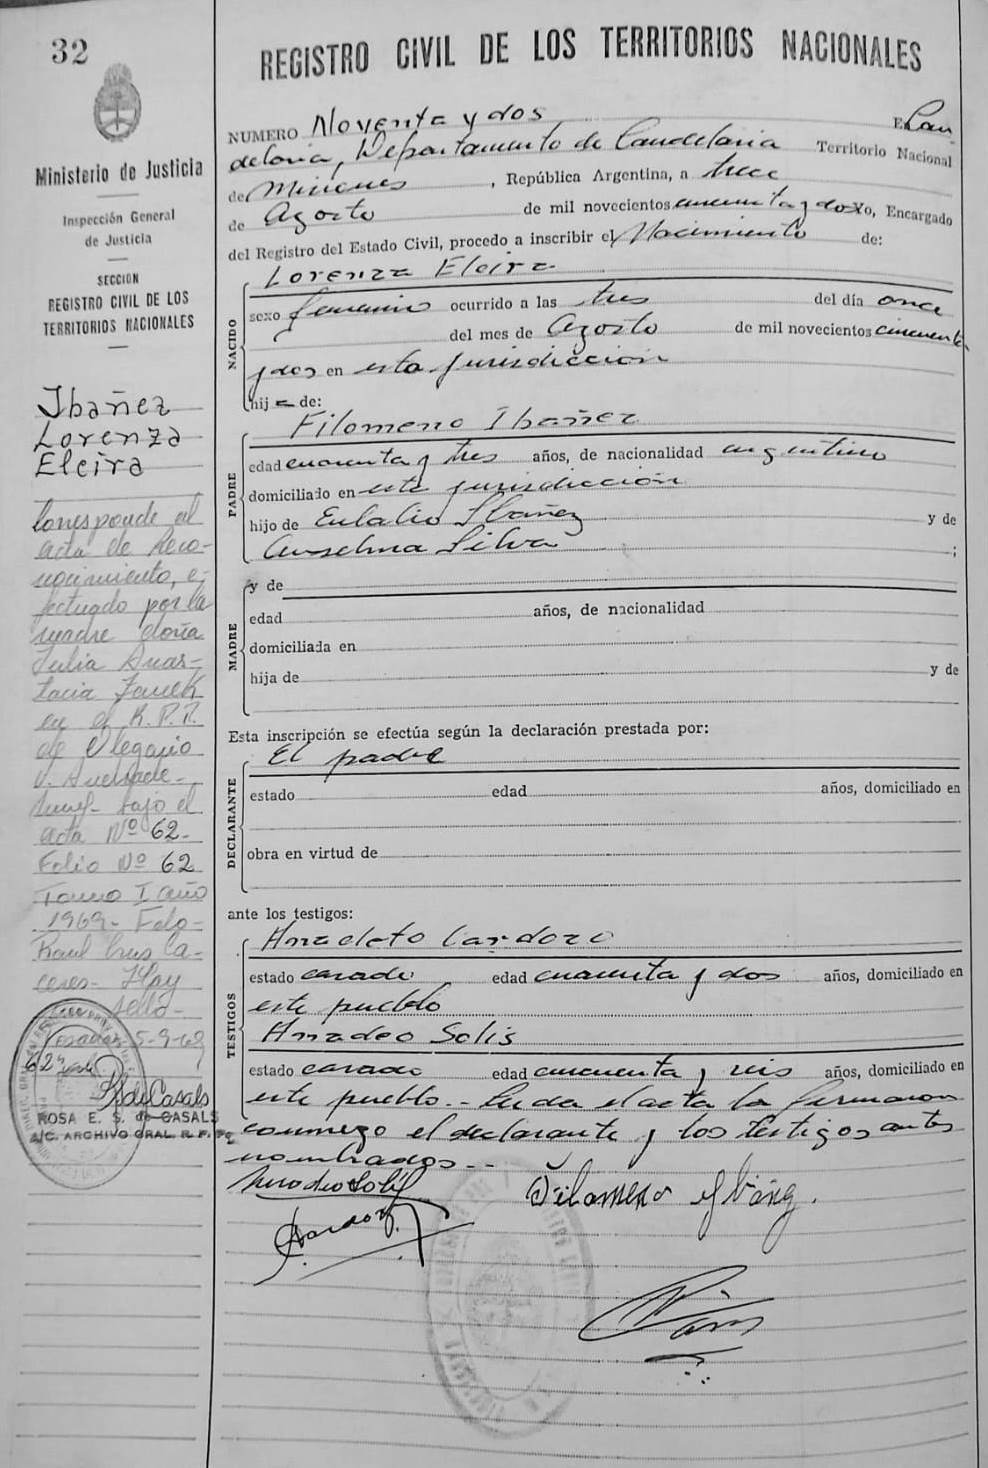 32
REGISTRO CIVIL DE LOS TERRITORIOS NACIONALES
Ministerio de Justicia
Inspección General
de Justicia
SECCION
REGISTRO CIVIL DE LOS
TERRITORIOS NACIONALES
Ibañez
Lorenza
Eleira
Corresponde al
acta de Reco-
nocimiento, e-
fectuado por la
madre doña
Julia Anas-
tacia
en el R.P.P.
de Olegario
V. Andrade-
bajo el
acta Nº 62-
Folio Nº 62
Tomo I año
1969- Fdo-
Raul Cruz Ca-
ceres- Hay
sello-
Posadas 5-9-69
ROSA E. S. de CASALS
A/C. ARCHIVO GRAL. R. P. P.
NUMERO Noventa y dos En Can
delaria, Departamento de Candelaria Territorio Nacional
de Misiones, República Argentina, a trece
de Agosto de mil novecientos cincuenta y dos Yo, Encargado
del Registro del Estado Civil, procedo a inscribir el Nacimiento de:
NACIDO
Lorenza Eleira
sexo femenino ocurrido a las tres del día once
del mes de Agosto de mil novecientos cincuenta
y dos en esta jurisdicción
hija de:
PADRE
Filomeno Ibañez
edad cuarenta y tres años, de nacionalidad argentino
domiciliado en esta jurisdicción
hijo de Eulalio Ibañez y de
Anselma Silva ;
MADRE
y de
edad años, de nacionalidad
domiciliada en
hija de y de
Esta inscripción se efectúa según la declaración prestada por:
DECLARANTE
El padre
estado edad años, domiciliado en
obra en virtud de
ante los testigos:
TESTIGOS
Anacleto Cardozo
estado casado edad cuarenta y dos años, domiciliado en
este pueblo
Amadeo Solis
estado casado edad cincuenta y seis años, domiciliado en
este pueblo.- Leida el acta la firmaron
conmigo el declarante y los testigos antes
nombrados.-
Amadeo Solis
Filomeno Ybañez.
Cardozo